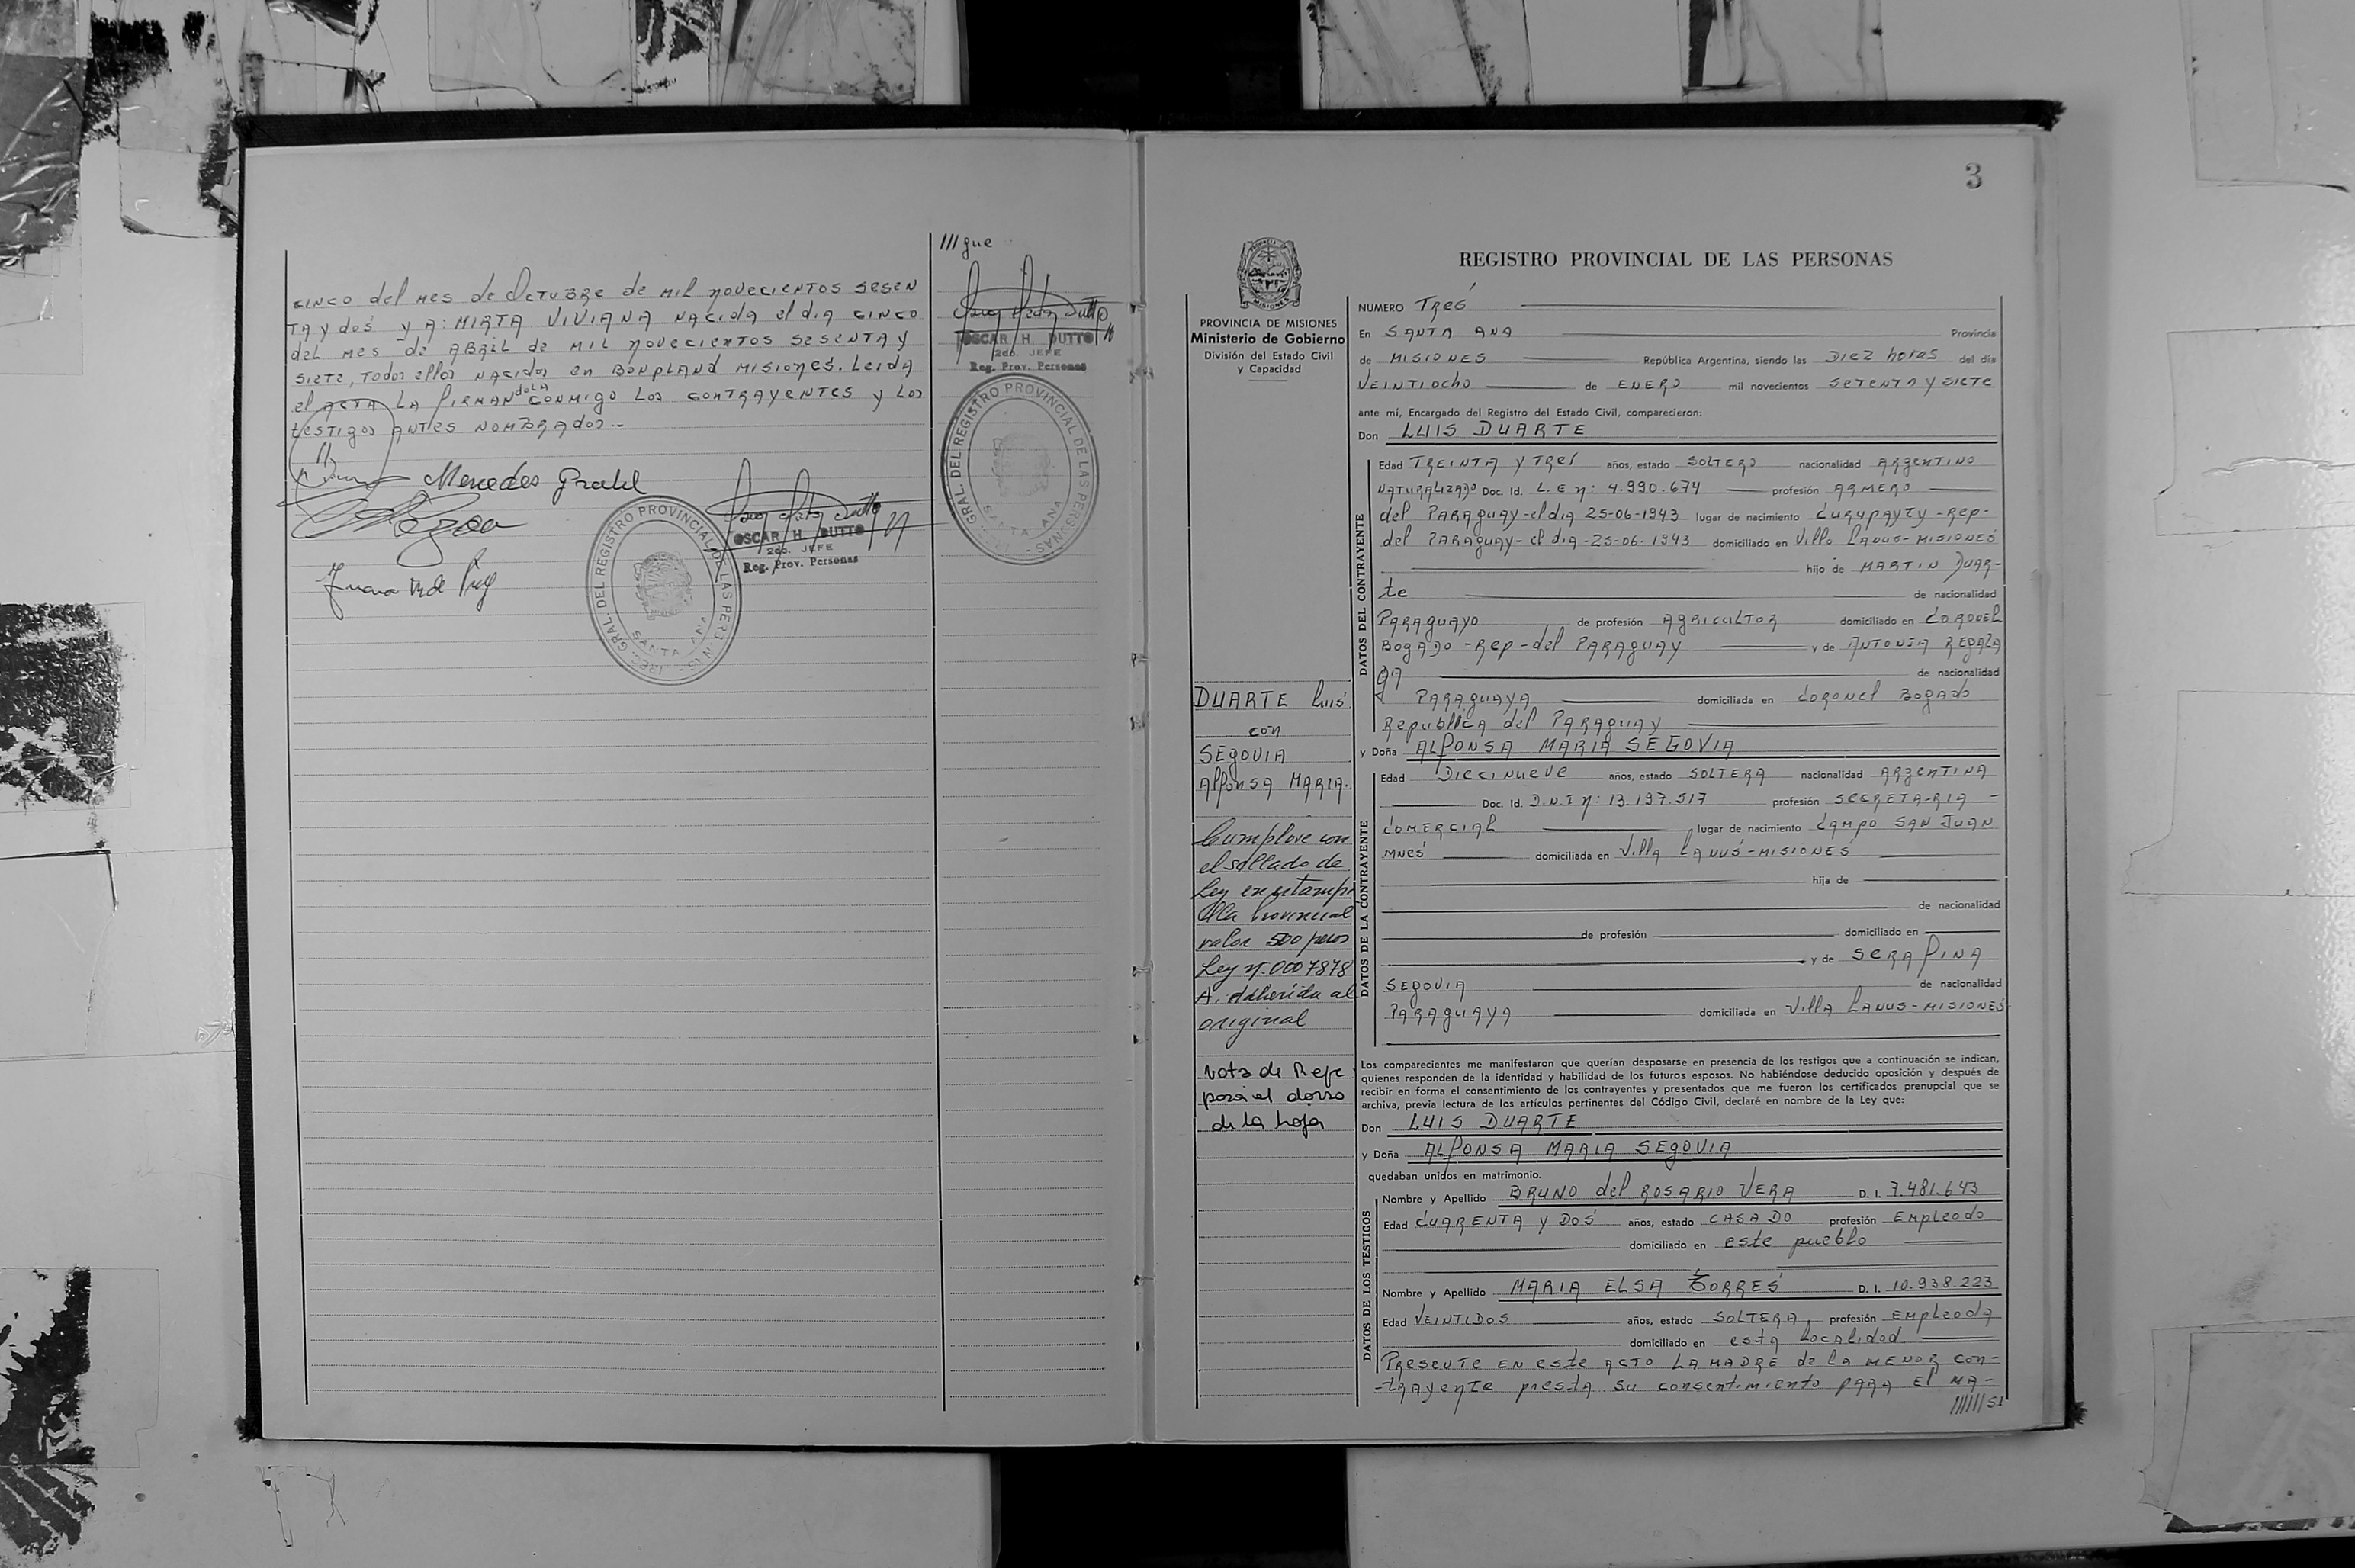 ///gue
CINCO del MES de OCTUBRE de MIL NOVECIENTOS SESEN
TA y dos y A: MIRTA VIVIANA NACIDA el dIA CINCO
del MES de ABRIL de MIL NOVECIENTOS SESENTA y
SIETE, Todos ellos NACIDOS en BONPLAND MISIONES. LEIDA
el ACTA LA FIRMAN dola CONMIGO LOS CONTRAYENTES y LOS
TESTIGOS ANTES NOMBRADOS.-
Mercedes
OSCAR H. DUTTO
2do. JEFE
Reg. Prov. Personas
GRAL. DEL REGISTRO PROVINCIAL DE LAS PERSONAS
SANTA ANA
OSCAR H. DUTTO
2do. JEFE
Reg. Prov. Personas
GRAL. DEL REGISTRO PROVINCIAL DE LAS PERSONAS
SANTA ANA
3
MISIONES
PROVINCIA DE MISIONES
Ministerio de Gobierno
División del Estado Civil
y Capacidad
DUARTE Luis
con
SEGOVIA
Alfonsa MARIA.
Cumplose con
el sellado de
Ley en estampi
lla Provincial
valor 500 pesos
Ley N. 0007878
A. Adherida al
original
Nota de Refe
para al dorso
de la hoja
REGISTRO PROVINCIAL DE LAS PERSONAS
NUMERO TRES
En SANTA ANA Provincia
de MISIONES República Argentina, siendo las DIEZ horas del día
VEINTIOCHO de ENERO mil novecientos SETENTA Y SIETE
ante mí, Encargado del Registro del Estado Civil, comparecieron:
Don LUIS DUARTE
DATOS DEL CONTRAYENTE
Edad TREINTA Y TRES años, estado SOLTERO nacionalidad ARGENTINO
NATURALIZADO Doc. Id. L. E N: 4.990.674 profesión ARMERO
del PARAGUAY-el dIA 25-06-1943 lugar de nacimiento CURUPAYTY-Rep-
del PARAGUAY- el dIA -25-06-1943 domiciliado en Villa LANUS-MISIONES
hijo de MARTIN DUAR-
te de nacionalidad
PARAGUAYO de profesión AGRICULTOR domiciliado en CORONEL
BOGADO-Rep-del PARAGUAY y de ANTONIA REGALA
GA de nacionalidad
PARAGUAYA domiciliada en CORONEL BOGADO
REPUBLICA del PARAGUAY
y Doña ALFONSA MARIA SEGOVIA
DATOS DE LA CONTRAYENTE
Edad DIECINUEVE años, estado SOLTERA nacionalidad ARGENTINA
Doc. Id. D.N.I N: 13.197.517 profesión SECRETA-RIA -
COMERCIAL lugar de nacimiento CAMPO SAN JUAN
MNES domiciliada en Villa LANUS-MISIONES
hija de
de nacionalidad
de profesión domiciliado en
y de SERAFINA
SEGOVIA de nacionalidad
PARAGUAYA domiciliada en Villa LANUS-MISIONES
Los comparecientes me manifestaron que querían desposarse en presencia de los testigos que a continuación se indican,
quienes responden de la identidad y habilidad de los futuros esposos. No habiéndose deducido oposición y después de
recibir en forma el consentimiento de los contrayentes y presentados que me fueron los certificados prenupcial que se
archiva, previa lectura de los artículos pertinentes del Código Civil, declaré en nombre de la Ley que:
Don LUIS DUARTE
y Doña ALFONSA MARIA SEGOVIA
quedaban unidos en matrimonio.
DATOS DE LOS TESTIGOS
Nombre y Apellido BRUNO del ROSARIO VERA D. I. 7.481.643
Edad CUARENTA Y DOS años, estado CASADO profesión Empleado
domiciliado en este pueblo
Nombre y Apellido MARIA ELSA TORRES D. I. 10.938.223
Edad VEINTIDOS años, estado SOLTERA profesión Empleada
domiciliado en esta localidad
PRESENTE EN este ACTO LA MADRE de la MENOR CON-
-TRAYENTE presta su consentimiento PARA El MA-
//////SI